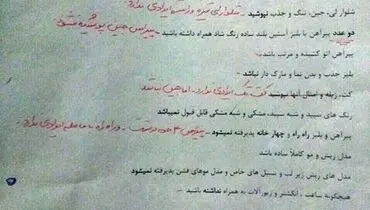 شلوار لی، جین، تنگ و جذب نپوشید - شلوار لی تیره راست ایرادی ندارد
دو عدد پیراهن با بلیز آستین بلند ساده رنگ شاد همراه داشته باشید - پیراهن جین پوشیده نشود
پیراهن اتو کشیده و مرتب باشد.
بلیز جذب و بدن نما و مارک دار نباشد
کت، ژیله و امثال آنها نپوشید کت تک ایرادی ندارد. اما جین نباشد
رنگ های سپید و شبه سپید، مشکی و شبه مشکی قابل قبول نمیباشد
پیراهن و بلیز راه راه و چهار خانه پذیرفته نمیشود - پیراهن درشت - و راه راه ایرادی ندارد
مدل ریش و مو کاملاً ساده باشد
مدل های ریش زیر لب و سبیل های خاص و مدل موهای فشن پذیرفته نمیشود
هیچگونه ساعت ، انگشتر و زیورآلات به همراه نداشته باشید -